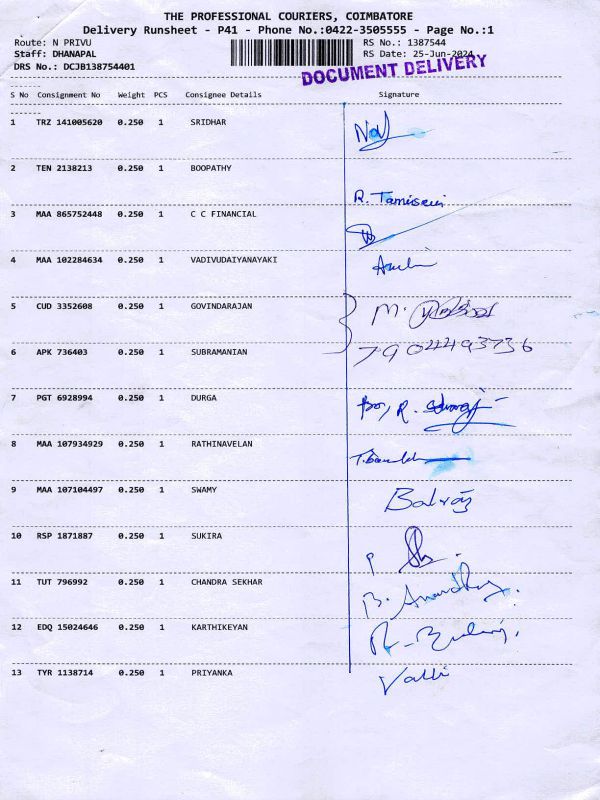 THE PROFESSIONAL COURIERS, COIMBATORE
Delivery Runsheet - P41 - Phone No.:0422-3505555 - Page No.:1
Route: N PRIVU RS No.: 1387544
Staff: DHANAPAL RS Date: 25-Jun-2024
DRS No.: DCJB138754401
DOCUMENT DELIVERY
S No Consignment No Weight PCS Consignee Details Signature
1 TRZ 141005620 0.250 1 SRIDHAR
2 TEN 2138213 0.250 1 BOOPATHY
R. Tamilselvi
3 MAA 865752448 0.250 1 C C FINANCIAL
4 MAA 102284634 0.250 1 VADIVUDAIYANAYAKI
5 CUD 3352608 0.250 1 GOVINDARAJAN M.
6 APK 736403 0.250 1 SUBRAMANIAN
7 PGT 6928994 0.250 1 DURGA
8 MAA 107934929 0.250 1 RATHINAVELAN
9 MAA 107104497 0.250 1 SWAMY Balraj
10 RSP 1871887 0.250 1 SUKIRA
11 TUT 796992 0.250 1 CHANDRA SEKHAR
12 EDQ 15024646 0.250 1 KARTHIKEYAN
13 TYR 1138714 0.250 1 PRIYANKA Valli